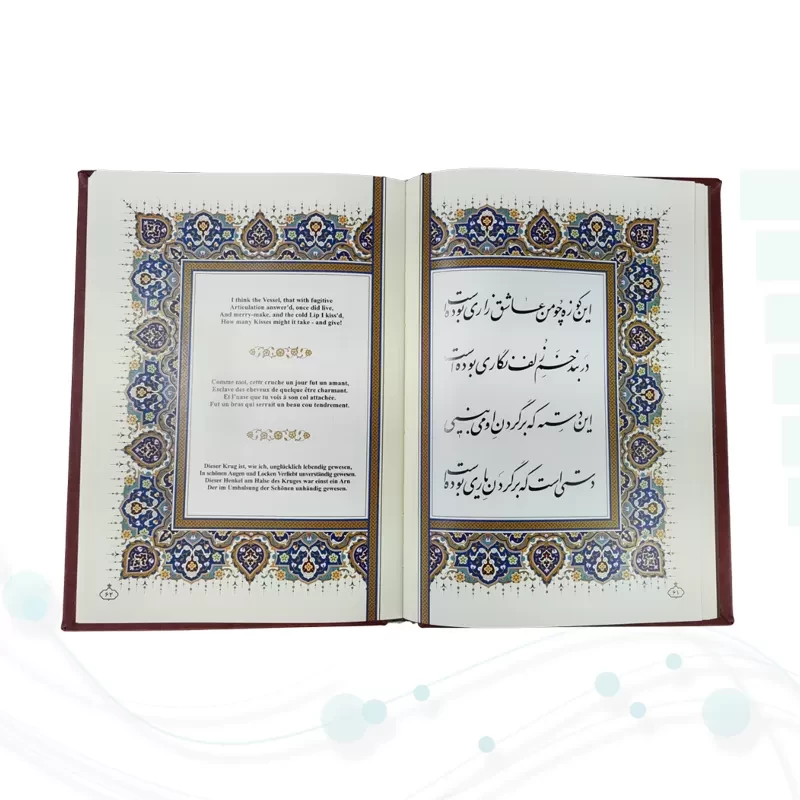 I think the Vessel, that with fugitive
Articulation answer'd, once did live,
And merry-make, and the cold Lip I kiss'd,
How many Kisses might it take - and give!
Comme moi, cette cruche un jour fut un amant,
Esclave des cheveux de quelque être charmant.
Et l'anse que tu vois à son col attachée.
Fut un bras qui serrait un beau cou tendrement.
Dieser Krug ist, wie ich, unglücklich lebendig gewesen,
In schönen Augen und Locken Verliebt unverständig gewesen.
Dieser Henkel am Halse des Kruges war einst ein Arn
Der im Umhalsung der Schönen unhändig gewesen.
۶۲
این کوزه چو من عاشق زاری بوده است
در بند خم زلف نگاری بوده است
این دسته که بر گردن او می بینی
دستی است که بر گردن یاری بوده است
۶۱